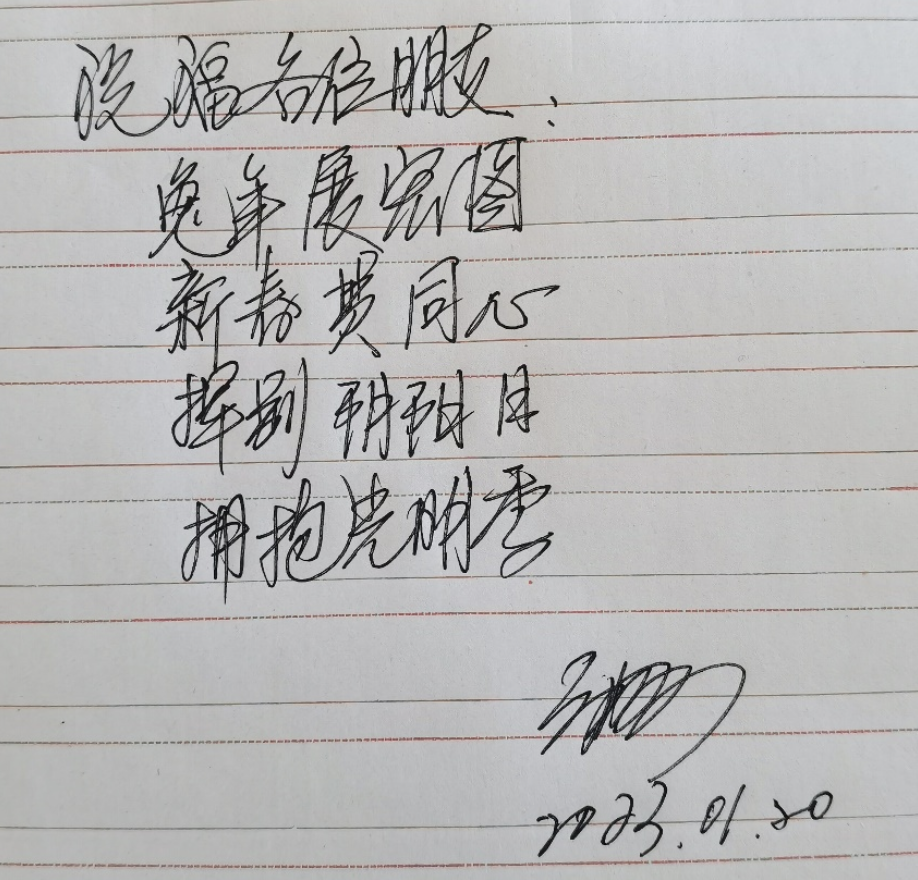 祝福各位朋友:
兔年展宏图
新春贯同心
挥别阴阳月
拥抱光明季
2023.01.20